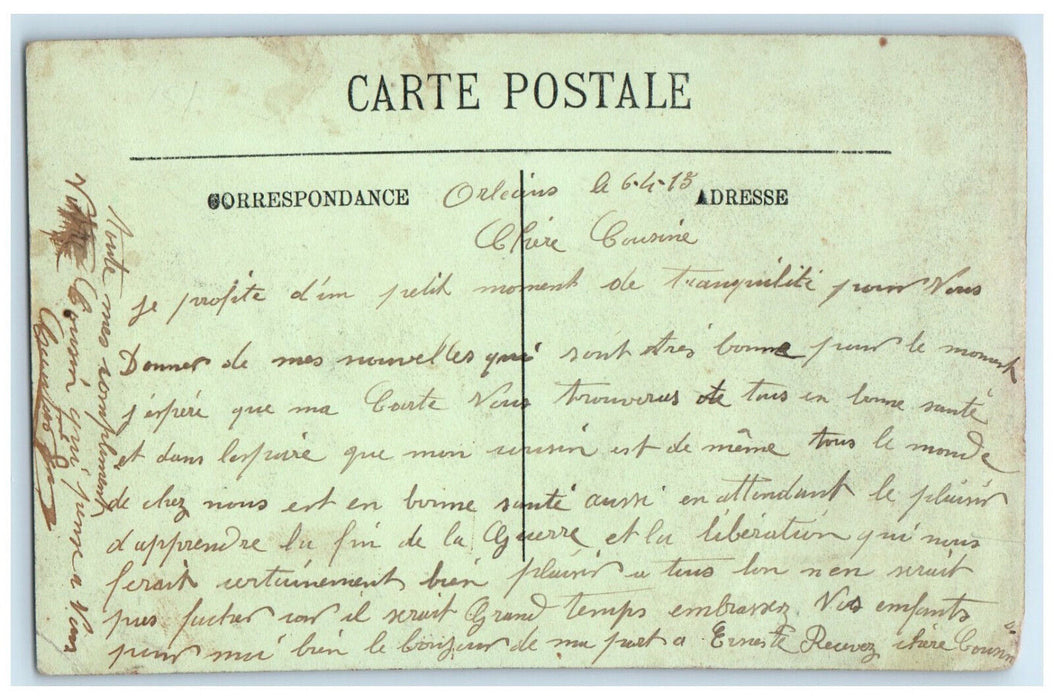 CARTE POSTALE
CORRESPONDANCE
ADRESSE
Orléans le 6-4-15
Chère Cousine
Je profite d'un petit moment de tranquilité pour Vous
Donner de mes nouvelles qui sont très bonne pour le moment
j'espère que ma Carte Vous trouveras de tous en bonne santé
et dans lespoire que mon cousin est de même tous le monde
de chez nous est en bonne santé aussi en attendant le plaisir
d'apprendre la fin de la Guerre et la libération qui nous
ferait certainement bien plaisir a tous lon nen serait
pas facher car il serait Grand temps embrassez Vos enfants
pour moi bien le bonjour de ma part a Erneste Recevez chère Cousine
toute mes compliments
Votre Cousin qui pense a Vous